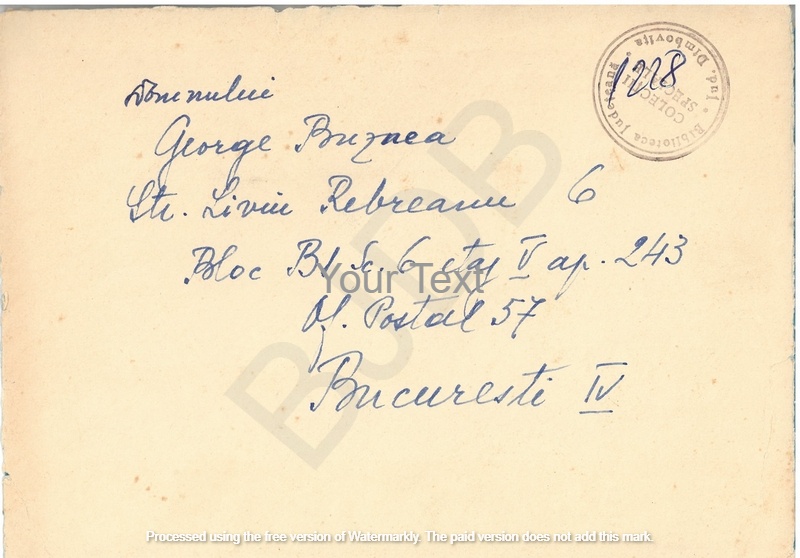 Domnului
George Buznea
Str. Liviu Rebreanu 6
Bloc B1 Sc. 6 etaj V ap. 243
Of. Postal 57
Bucuresti IV
1228
Biblioteca Județeană * Jud. Dîmbovița *
COLECȚII
SPECIALE
BJDB
Your Text
Processed using the free version of Watermarkly. The paid version does not add this mark.